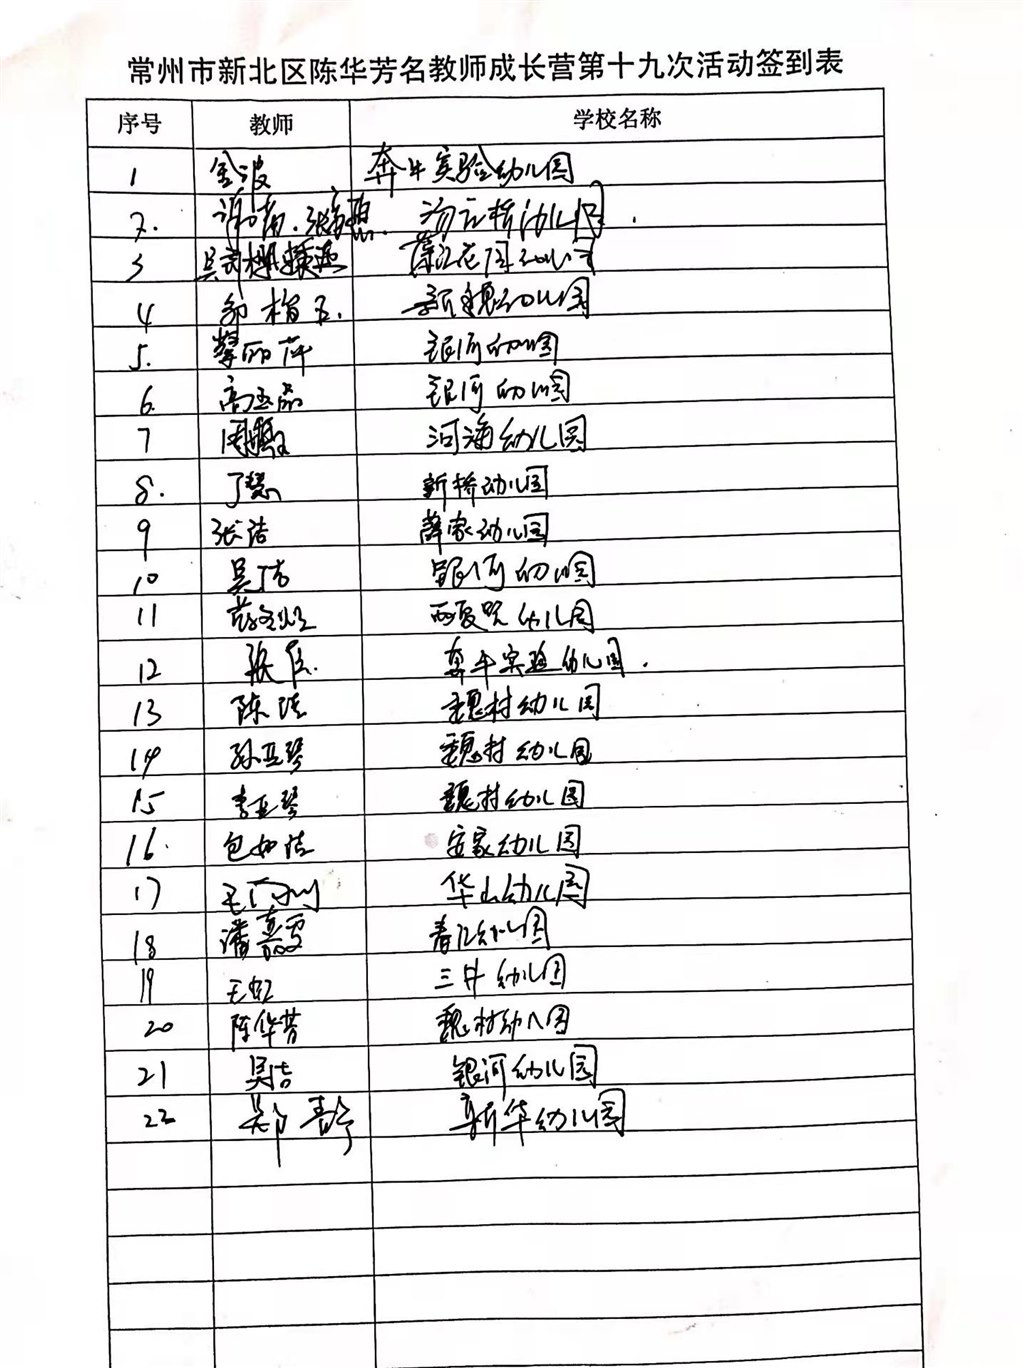 常州市新北区陈华芳名教师成长营第十九次活动签到表
序号 教师 学校名称
1 金波 奔牛实验幼儿园
2. 幼儿园.
3 花园幼儿园
4 邹梅玉. 新魏幼儿园
5. 蔡丽萍 银河幼儿园
6. 高玉 银河幼儿园
7 河海幼儿园
8. 丁慧 新桥幼儿园
9 张洁 薛家幼儿园
10 吴洁 银河幼儿园
11 西夏墅幼儿园
12 奔牛实验幼儿园.
13 陈洁 魏村幼儿园
14 孙亚琴 魏村幼儿园
15 李亚琴 魏村幼儿园
16. 包如洁 安家幼儿园
17 华山幼儿园
18 潘嘉雯 春江幼儿园
19 王虹 三井幼儿园
20 陈华芳 魏村幼儿园
21 吴洁 银河幼儿园
22 郑 新华幼儿园